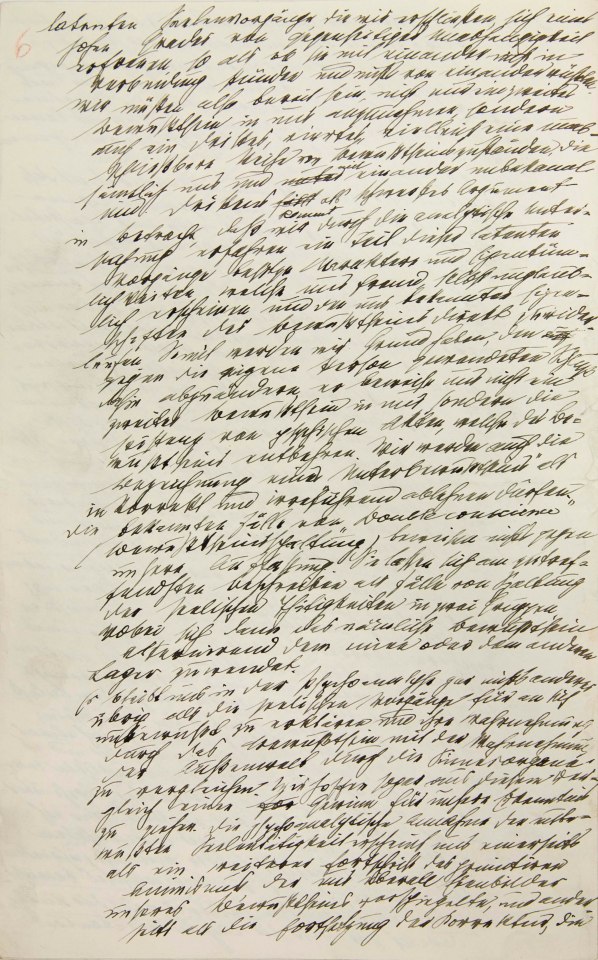 6
latenten Seelenvorgänge die wir erschließen, sich eines
hohen Grades von gegenseitiger Unabhängigkeit
erfreuen, so als ob sie mit einander nicht in
Verbindung stünden und nichts von einander wüßten.
Wir müssen also bereit sein, nicht nur ein zweites
Bewußtsein in uns anzunehmen, sondern
auch ein drittes, viertes, vielleicht eine unab-
schließbare Reihe von Bewußtseinszuständen, die
sämtlich uns und mit einander unbekannt
sind. Drittens kommt als schwerstes Argument
in Betracht, daß wir durch die analytische Unter-
suchung erfahren ein Teil dieser latenten
Vorgänge besitze Charaktere und Eigentüm-
lichkeiten, welche uns fremd, selbst unglaub-
lich erscheinen und den uns bekannten Eigen-
schaften des Bewußtseins direkt zuwider-
laufen. Somit werden wir Grund haben, den
gegen die eigene Person gewendeten Schluß
dahin abzuändern, er beweise uns nicht ein
zweites Bewußtsein in uns sondern die
Existenz von psychischen Akten, welche des Be-
wußtseins entbehren. Wir werden auch die
Bezeichnung eines „Unterbewußtseins“ als
inkorrekt und irreführend ablehnen dürfen.
Die bekannten Fälle von „Double conscience“
(Bewußtseinsspaltung) beweisen nichts gegen
unsere Auffassung. Sie lassen sich am zutref-
fendsten beschreiben als Fälle von Spaltung
der seelischen Tätigkeiten in zwei Gruppen
wobei sich dann das nämliche Bewußtsein
alternirend dem einen oder dem anderen
Lager zuwendet.
Es bleibt uns in der Psychoanalyse gar nichts anderes
übrig als die seelischen Vorgänge für an sich
unbewußt zu erklären und ihre Wahrnehmung
durch das Bewußtsein mit der Wahrnehmung
der Außenwelt durch die Sinnesorgane
zu vergleichen. Wir hoffen sogar aus diesem Ver-
gleich einen Gewinn für unsere Erkenntnis
zu ziehen. Die psychoanalytische Annahme der unbe-
wußten Seelentätigkeit erscheint uns einerseits
als ein weiterer des primitiven
Animismus der uns überall Ebenbilder
unseres Bewußtseins vorspiegelte, und ander-
seits als die Fortsetzung der Korrektur, die